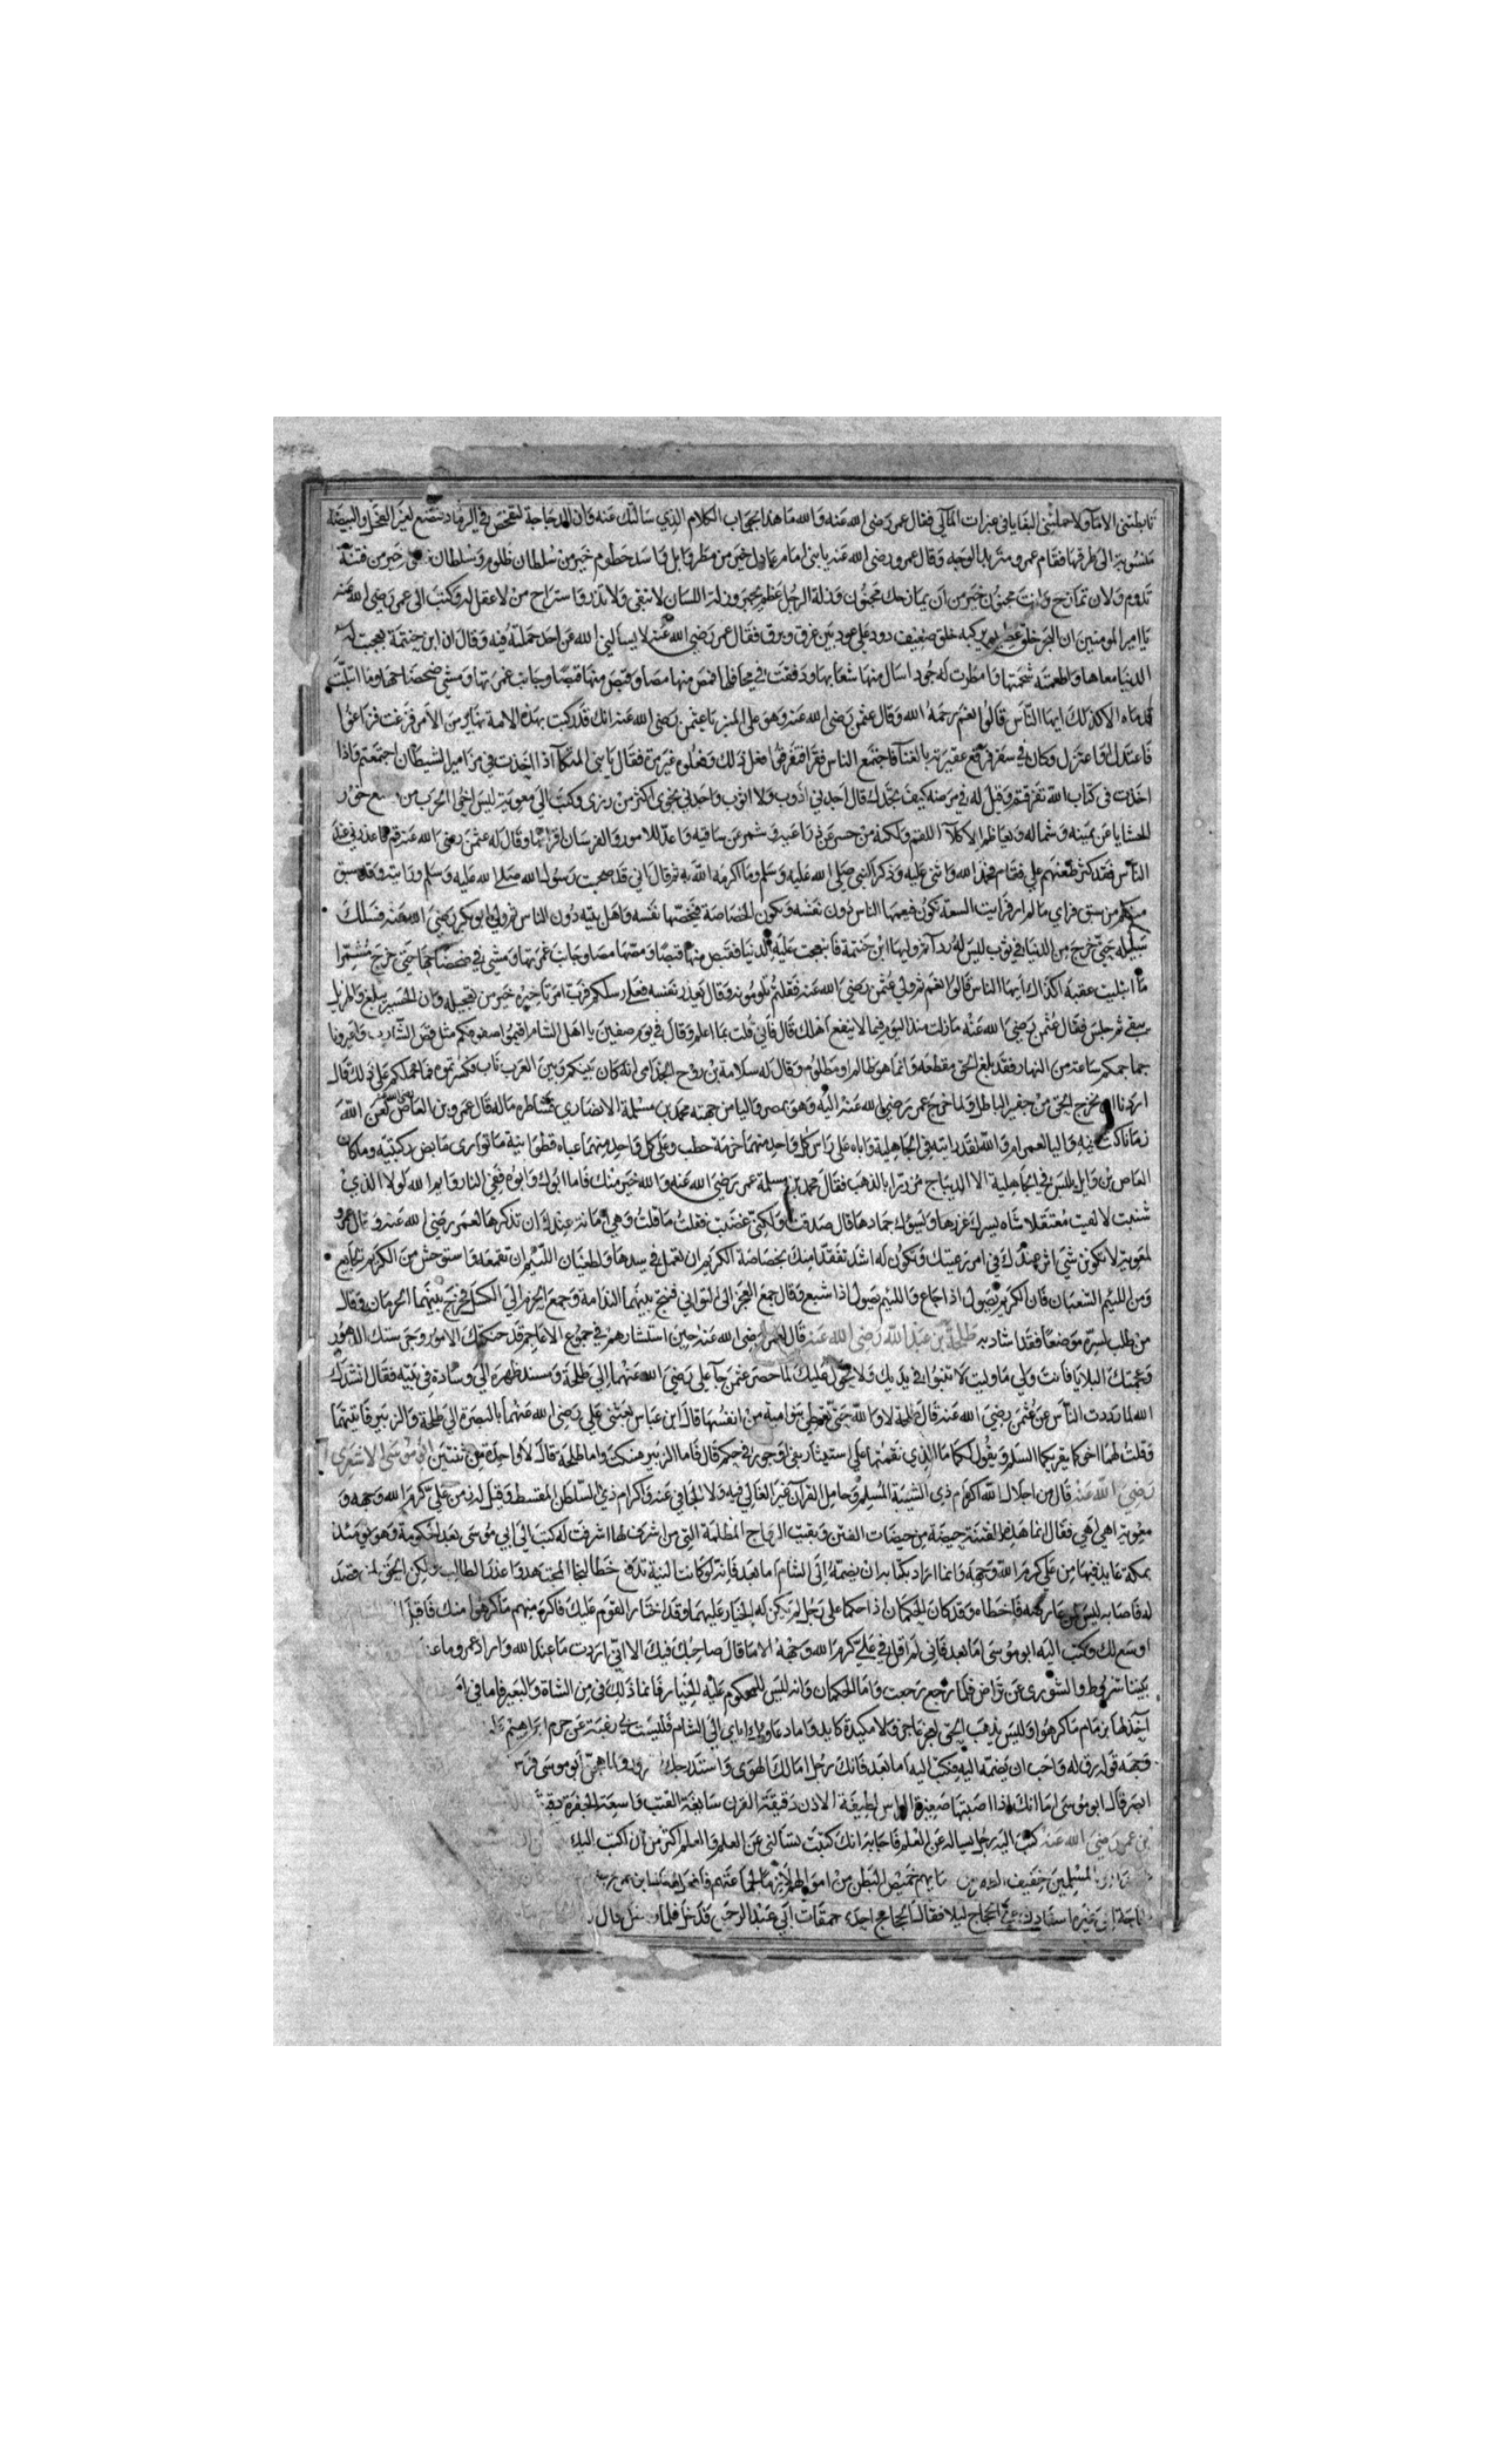 تابطتني الاما ولا حملتني البغايا في غبرات المآلي فقال عمر رضى الله عنه والله ما هذا بجواب الكلام الذي سالتك عنه وان الدجاجة لتفحص في الرماد فتضع لغير الفحل والبيضة
منسوبة الى طرقها فقام عمرو متربد الوجه وقال عمرو رضى الله عنه يا بنى امام عادل خير من مطر وابل واسد حطوم خير من سلطان ظلوم وسلطان خير من فتنة
تدوم ولان تمازح وانت مجنون خير من ان يمازحك مجنون وزلة الرجل عظم يجبر وزلة اللسان لا تبقي ولا تذر واستراح من لا عقل له وكتب الى عمر رضى الله عنه
يا امير المومنين ان البحر خلق عظيم يركبه خلق ضعيف دود على عود بين غرق وبرق فقال عمر رضي الله عنه لا يسالني الله عن احد حملته فيه وقال ان ابن حنتمة بعجت له
الدنيا معاها واطعمته شحمتها وامطرت له جودا سال منها شعابها ودفقت في محافلها فمص منها مصا وقبص منها قبصا وجانب غمرتها ومشي ضحضاحها وما ابتلت
قدماه الا كذلك ايها الناس قالوا نعم رحمه الله وقال عثمن رضى الله عنه وهو على المنبر يا عثمن رضى الله عنه انك قد ركبت بهذه الامة نهابير من الامر فزغت فزاغوا
فاعتدل او اعتزل وكان في سفر فرفع عقيرته بالغنا فاجتمع الناس فقرا فتفرقوا فعل ذلك وفعلوه غير مرة فقال يا بني المتكا اذا اخذت في مزامير الشيطان اجتمعتم واذا
اخذت فى كتاب الله تفرقتم وقيل له في مرضه كيف تجدك قال اجدني اذوب ولا اثوب واجدني نجوى اكثر من رزى وكتب الي معوية ليس اخو الحرب من يضع خور
الحشايا عن يمينه وشماله ويعاظم الاكلا اللقم ولكنه من حسر عن ذراعيه وشمر عن ساقيه واعد للامور والفرسان اقرانها وقال له عثمن رضى الله عنه قم فاعذرني عند
الناس فقد كثر طعنهم علي فقام فحمد الله واثنى عليه وذكر النبي صلى الله عليه وسلم وما اكرمه الله به ثم قال اني قد صحبت رسول الله صلى الله عليه وسلم ورايته وقد سبق
منكم من سبق فراي ما لم ار فرايت السعة تكون فيعمها الناس دون نفسه وتكون الخصاصة فيخصها نفسه واهل بيته دون الناس ثم ولي ابو بكر رضي الله عنه فسلك
سبيله حتى خرج من الدنيا في ثوب ليس له ردا ثم وليها ابن حنتمة فانبعجت عليه الدنيا فقبص منها قبصا ومصها مصا وجانب غمرتها ومشي في ضحضاحها حتى خرج مشمرا
ما ابتليت عقبه اكذاك ايها الناس قالوا نعم ثم ولي عثمن رضي الله عنه فقلتم تلومونه وقال يعذر نفسه فعلى رسلكم فرب امر تاخيره خير من تعجيله وان الحسير يبلغ والهزيل
يبقى ثم جلس فقال عثمن رضي الله عنه ما زلت منذ اليوم فيما لا ينفع اهلك قال فاني قلت بما اعلم وقال في يوم صفين يا اهل الشام اقيموا صفوفكم مثل قص الشارب واعيرونا
جماجمكم ساعة من النهار فقد بلغ الحق مقطعه وانما هو ظالم او مظلوم وقال له سلامة بن روح الجذامى انه كان بينكم وبين العرب باب فكسرتموه فما حملكم على ذلك قال
اردنا ان نخرج الحق من حفير الباطل ولما خرج عمر رضي الله عنه اليه وهو بمصر واليا من جهته محمد بن مسلمة الانصاري فشاطره ماله قال عمرو بن العاص لعن الله
زمانا كنت فيه واليا لعمر ام والله لقد رايته في الجاهلية واباه على راس كل واحد منهما حزمة حطب وعلى كل واحد منهما عباه قطوانية ما توارى مابض ركبتيه وما كان
العاص بن وايل يلبس في الجاهلية الا الديباج مزررا بالذهب فقال محمد بن مسلمة عمر رضي الله عنه والله خير منك فاما ابوك وابوه ففي النار وايم الله لولا الذي
شنعت لالفيت معتقلا شاه يسرك غزرها ويسوك جمادها قال صدقت ولكني غضبت فقلت ما قلت وهي امانة عندك ان تذكرها لعمر رضي الله عنه وقال عمرو
لمعوية لا تكونن شي اثر عندك في امر رعيتك وتكون له اشد تفقدا منك بخصاصة الكريم ان تعمل في سدها ولطغيان اللئيم ان تقمعه واستوحش من الكريم الجايع
ومن اللئيم الشبعان فان الكريم يصول اذا جاع واللئيم يصول اذا شبع وقال جمع العجز الى التواني فنتج بينهما الندامة وجمع الحزم الي الكسل فخرج بينهما الحرمان وقال
من طلب لسره موضعا فقد اشاد به طلحة بن عبد الله رضي الله عنه قال لعمر رضى الله عنه حين استشارهم في جموع الاعاجم قد حنكتك الامور وجرستك الدهور
وعجمتك البلايا فانت ولي ما وليت لا تنبوا في يديك ولا نحول عليك لما حصر عثمن جآ علي رضي الله عنهما الي طلحة ومسند ظهره الي وسادة في بيته فقال انشدك
الله لما رددت الناس عن عثمن رضي الله عنه قال طلحة لا والله حتى تعطي بنو امية من انفسها قال ابن عباس بعثني علي رضى الله عنهما بالبصرة الي طلحة والزبير فاتيتهما
وقلت لهما اخوكما يقريكما السلم ويقول لكما ما الذي نقمتما علي استيثار بفي او جور في حكم قال فاما الزبير فسكت واما طلحة قال لا واحدة من ثنتين ابو موسى الاشعرى
رضي الله عنه قال من اجلال الله اكرام ذى الشيبة المسلم وحامل القرآن غير الغالي فيه ولا الجافي عنه واكرام ذي السلطن المقسط وقيل له زمن علي كرم الله وجهه و
معوية اهي هي فقال انما هذه الفتنة حيصة من حيصات الفتن وبقيت الرداح المظلمة التي من اشرف لها اشرفت له كتب الي ابي موسى بعد الحكومة وهو يومئذ
بمكة عايذ فيها من علي كرم الله وجهه وانما اراد بكتابه ان يضمه الى الشام اما بعد فانه لو كانت النية تدفع خطا لنجا المجتهد واعذر الطالب ولكن الحق لمن قصد
له فاصابه ليس لمن عارضه فاخطاه وقد كان الحكمان اذا حكما على رجل لم يكن له الخيار عليهما وقد اختار القوم عليك فاكره منهم ما كرهوا منك فاقبل
اوسع لك وكتب اليه ابو موسى اما بعد فاني لم اقل في علي كرم الله وجهه الا ما قال صاحبك فيك الا اني اردت ما عند الله واراد عمرو ما عند
بيننا شروط والشورى عن تراض فلما رجع رجعت واما الحكمان وانه ليس للمحكوم عليه الخيار فانما ذلك في من الشاة والبعير فاما في امر
اخذ لها بزمام ما كرهوا وليس يذهب الحق لعجز عاجز ولا مكيدة كايد واما دعاوك اياي الى الشام فليست لي رغبة عن حرم ابراهيم
وجهه قوله رق له واحب ان يضمه اليه فكتب اليه اما بعد فانك رجل امالك الهوى واستدرجك ابو موسى
قال ابو موسى اما انك اذا اصبتها صغيرة الراس لطيفة الاذن دقيقة القرن سابغة القتب واسعة الجفرة
بن عمر رضي الله عنه كتب اليه رجل يساله عن العلم فاجابه انك كتبت تسالني عن العلم والعلم اكثر من ان اكتب اليك
المسلمين خفيف الظهر من دمايهم خميص البطن من اموالهم لازما لجماعتهم فافعل
الحجاج ليلا فقال الحجاج احدى حمقات ابي عبد الرحمن قد دخل فلما